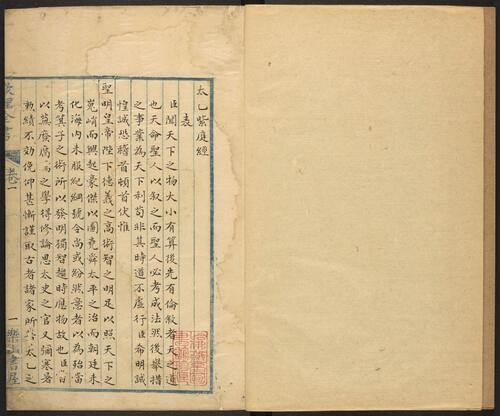 太乙紫庭經
表
臣聞天下之物大小有算後先有倫敘者天之道
也天命聖人以叙之而聖人必考成法然後舉措
之事業為天下利苟非其時道不虛行臣希明誠
惶誠恐稽首頓首伏惟
聖明皇帝陛下德義之高術智之明足以照天下之
冕而興起豪傑以圖堯舜太平之治而朝廷未
化海內未服紀綱號令尚或紛然意者以為殆當
考箕子之術所以發明獨智趨時應物故也臣自
以蕪廢腐之學得修論思太史之官又彌寒暑
勅績不効俛仰甚慚謹取古者諸家所太乙之
數聖全書
卷一
一 樂山書屋